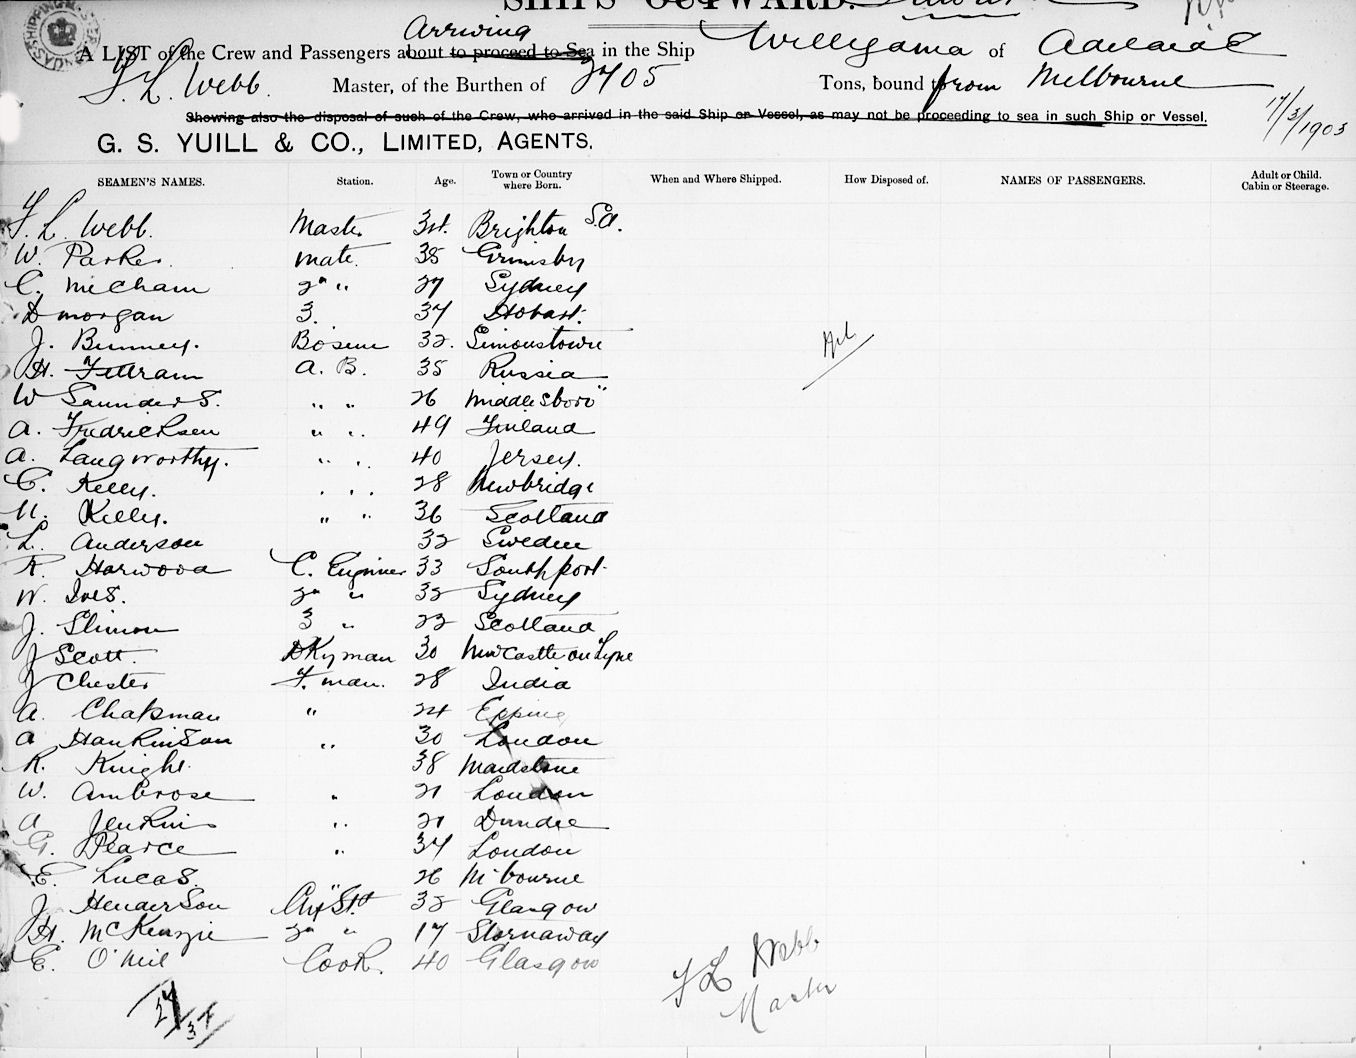 SHIPS OUTWARD.
Arriving
A LIST of the Crew and Passengers about to proceed to Sea in the Ship Willyama of Adelaide
F. L. Webb. Master, of the Burthen of 2705 Tons, bound from Melbourne
Showing also the disposal of such of the Crew, who arrived in the said Ship or Vessel, as may not be proceeding to sea in such Ship or Vessel.
17/3/1903
G. S. YUILL & CO., LIMITED, AGENTS.
SEAMEN'S NAMES. Station. Age. Town or Country where Born. When and Where Shipped. How Disposed of. NAMES OF PASSENGERS. Adult or Child. Cabin or Steerage.
F. L. Webb. Master 34. Brighton S.A.
W. Parker. mate. 35 Grimsby
C. Mecham 2nd " 27 Sydney
D morgan 3. 37 Hobart.
J. Bunney. Bosun 32. Simonstown
H. A. B. 35 Russia
W Saunders. " " 26 Middlesboro'
A. Fredricksen " " 49 Finland
A. Langworthy. " " 40 Jersey.
C. Kelly. " " 28 Newbridge
M. Kelly. " " 36 Scotland
L. Anderson 32 Sweden
R. Harwood C. Engineer 33 Southport
W. Ives. 2nd " 32 Sydney
J. Slimon 3 " 23 Scotland
J Scott. DKyman 30 Newcastle on Tyne
J Chester F. man. 28 India
A. Chapman " 24 Epping
A Hankinson " 30 London
R. Knight 38 Maidstone
W. Ambrose " 21 London
A Jenkins " 21 Dundee
G. Pearce " 34 London
E. Lucas. " 26 M'bourne
J. Henderson Chf Std 32 Glasgow
H. McKenzie 2nd " 17 Stornaway
E. O'Neil Cook. 40 Glasgow
F L Webb
Master
27